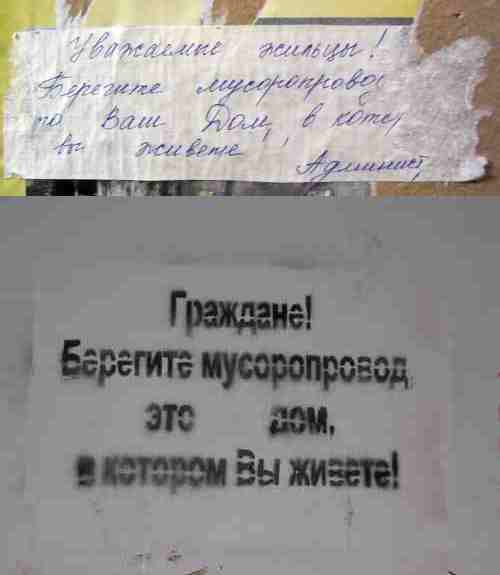 Уважаемые жильцы!
Берегите мусоропровод
то Ваш Дом, в кото
вы живете!
Админист
Граждане!
Берегите мусоропровод
это дом,
в котором Вы живете!